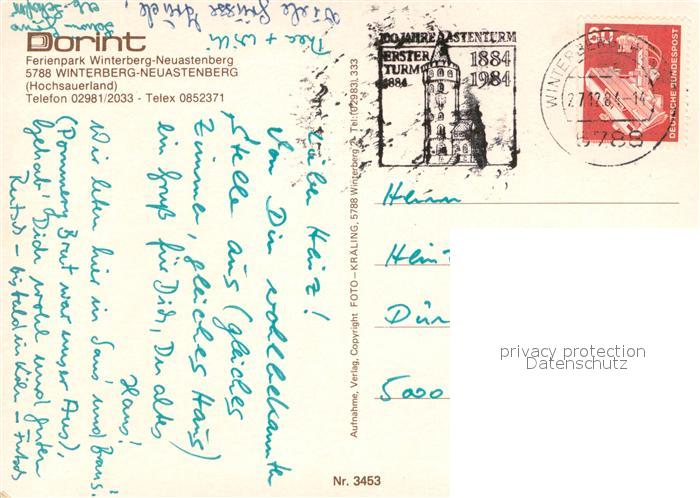 Dorint
Ferienpark Winterberg-Neuastenberg
5788 WINTERBERG-NEUASTENBERG
(Hochsauerland)
Telefon 02981/2033 - Telex 0852371
Viele Grüsse
Theo + Willi
Lieber Heinz!
Von Dir wohlbekannter
Stelle aus (gleiches
Zimmer, gleiches Haus)
ein Gruß für Dich, Du altes
Haus!
Wir leben hier in Saus und Braus.
(Pommery Brut war unser Aus),
Gehab' Dich wohl und guten
Rutsch - bis bald in Köln -
Aufnahme, Verlag, Copyright FOTO-KRÄLING, 5788 Winterberg 2, Tel: (02983) 333
100 JAHRE ASTENTURM
ERSTER
TURM
1884
1884
1984
WINTERBERG
27.12.84-14
5788
60
DEUTSCHE BUNDESPOST
Herrn
Hein
Dür
5000
privacy protection
Datenschutz
Nr. 3453